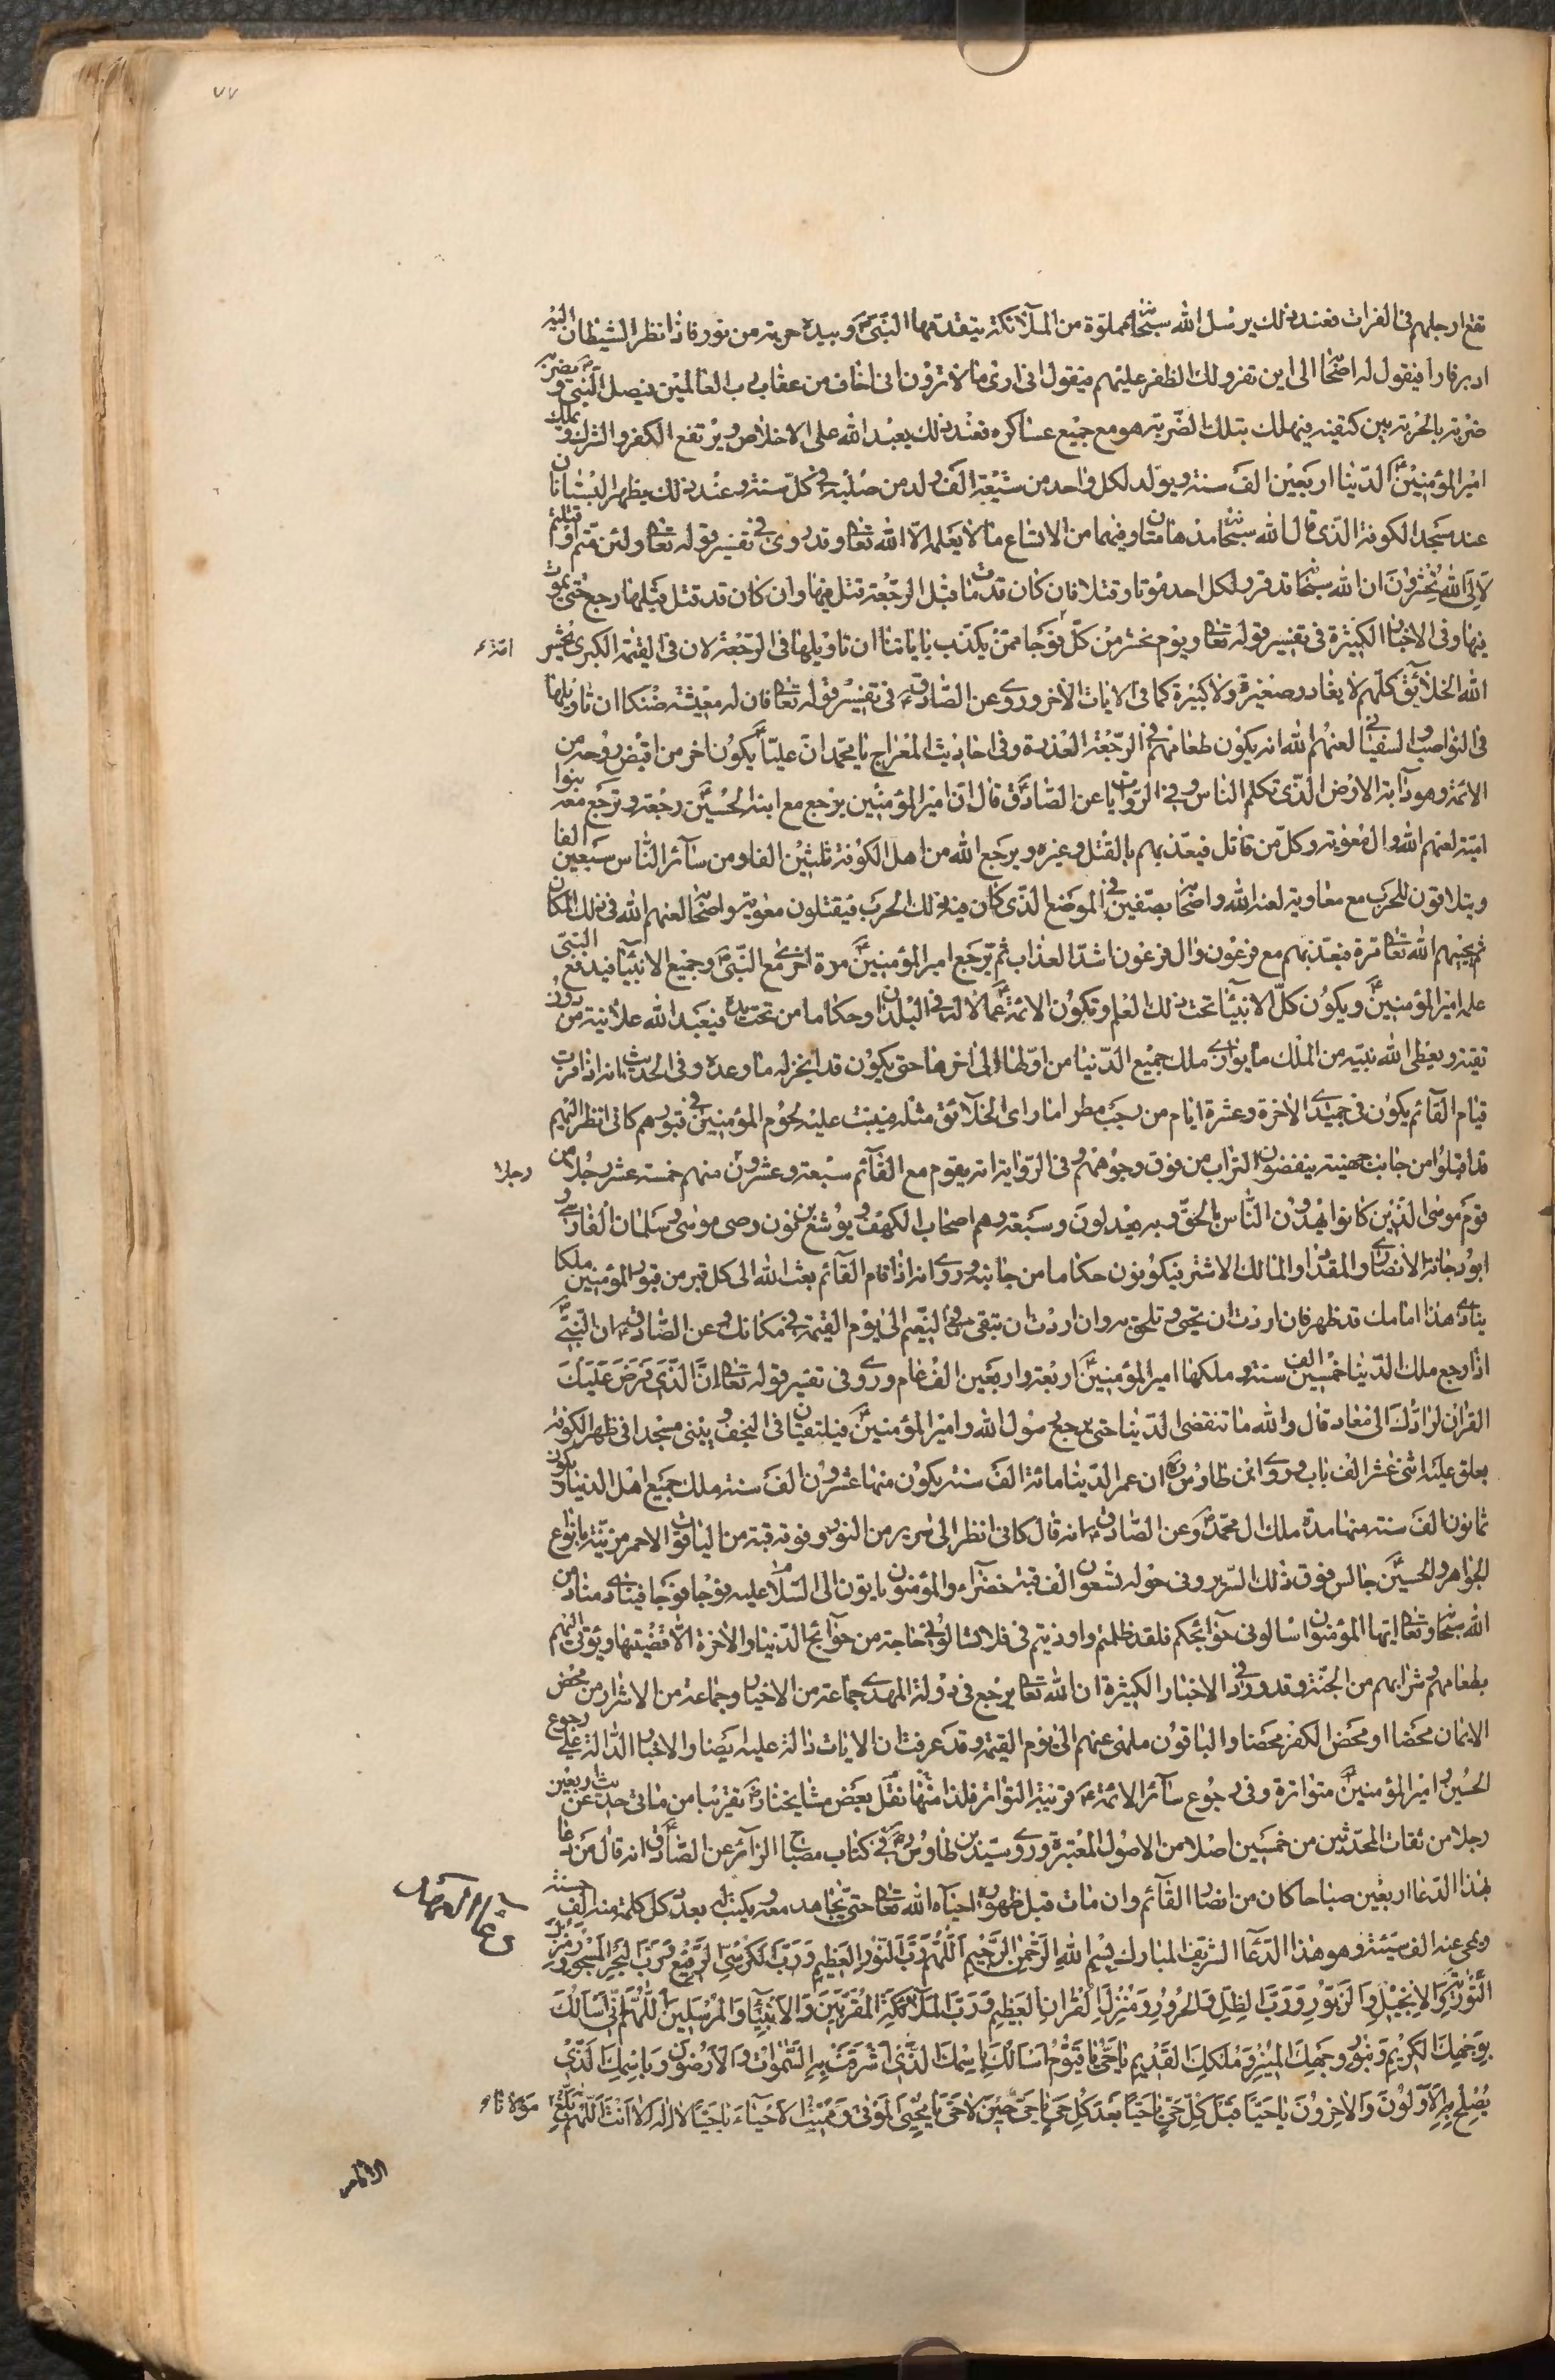 ٧٧
تقع ارجلهم فى الفرات فعند ذلك يرسل الله سبحانه مملوّة من الملآئكة يتقدمها النبىّ ص وبيده حربة من نور فاذا نظر الشيطان اليه
ادبر فارا فيقول له اصحابه الى اين تفر ولك الظفر عليهم فيقول انى ارى ما لا ترون انى اخاف من عقاب رب العالمين فيصل النبى ص ويضربه
ضربة بالحربة بين كتفيه فيهلك بتلك الضّربة هو مع جميع عساكره فعند ذلك يعبد الله على الاخلاص ويرتفع الكفر والشرك ويملك
امير المؤمنين ع الدّنيا اربعين الف سنة ويولد لكل واحد من شيعته الف ولد من صلبه فى كلّ سنة وعند ذلك يظهر البستانان
عند مسجد الكوفة الذى قال الله سبحانه مدهامتان وفيهما من الاتساع ما لا يعلمه الّا الله تعا وقد روى فى تفسير قوله تعا ولئن متم او قتلتم
لَاِلَى اللهِ تُحْشَرُونَ ان الله سبحانه قد قرر لكل احد موتا وقتلا فان كان قد مات قبل الرجعة قتل فيها وان كان قد قتل قبلها رجع حتى يموت
فيها وفى الاخبار الكثيرة فى تفسير قوله تعا ويوم نحشر من كلّ فوجا ممّن يكذّب باياتنا ان تاويلها فى الرّجعة لان فى القيمة الكبرى يحشر
امّة ء
الله الخلآئق كلّهم لا يغادر صغيرة ولا كبيرة كما فى الايات الاخر وروى عن الصّادق ع فى تفسير قوله تعا فان له معيشة ضنكا ان تاويلها
فى النواصب والسفيانى لعنهم الله انه يكون طعامهم فى الرّجعة العذرة وفى احاديث المعراج يا محمد انّ عليّا ع يكون اخر من اقبض روحه من
الائمة وهو دآبة الارض الذى تكلم الناس وفى الروايات عن الصّادق ع قال انّ امير المؤمنين يرجع مع ابنه الحسين ع رجعة وترجع معه بنوا
اميّة لعنهم الله وال معوية وكلّ من قاتل فيعذبهم بالقتل وغيره ويرجع الله من اهل الكوفة ثلثين الفا ومن سآئر النّاس سبعين الفا
ويتلاقون للحرب مع معاوية لعنه الله واصحابه بصفّين فى الموضع الذى كان فيه ذلك الحرب فيقتلون معوية واصحابه لعنهم الله فى ذلك المكان
ثم يحييهم الله تعا مرة فيعذبهم مع فرعون وال فرعون اشدّ العذاب ثم يرجع امير المؤمنين ع مرة اخرى مع النّبى ص وجميع الانبيآء فيدفع النبىّ
علمه امير المؤمنين ع ويكون كلّ الانبيآء تحت ذلك العلم وتكون الائمة ع عمالا له فى البلدان وحكاما من تحت يده فيعبد الله علانية من دون
تقية ويعطى الله نبيّه من الملك ما يوازى ملك جميع الدّنيا من اوّلها الى اخرها حتى يكون قد انجز له ما وعده وفى الحديث انه اذا قرب
قيام القآئم يكون فى جميدى الاخرة وعشرة ايام من رجب مطر اما راى الخلآئق مثله فينبت عليه لحوم المؤمنين فى قبورهم كانى انظر اليهم
قد اقبلوا من جانب جهينة ينفضون التراب من فوق وجوههم وفى الرّواية انه يقوم مع القآئم سبعة وعشرون منهم خمسة عشر رجلا من
رجلا
قوم موسى الّذين كانوا يهدون النّاس بالحقّ وبه يعدلون وسبعة وهم اصحاب الكهف ويوشع بن نون وصى موسى وسلمان الفارسى و
ابو دجانة الانصارى والمقداد والمالك الاشتر فيكونون حكاما من جانبه وروى انه اذا قام القآئم بعث الله الى كل قبر من قبور المؤمنين ملكا
ينادى هذا امامك قد ظهر فان اردت ان تحيى وتلحق به وان اردت ان تبقى فى النّعيم الى يوم القيمة فى مكانك وعن الصّادق ع ان النّبىّ ص
اذا رجع ملك الدّنيا خمسين الف سنة وملكها امير المؤمنين ع اربعة واربعين الف عام وروى فى تفسير قوله تعا انّ الّذى فرض عليك
القران لرادّك الى معاد قال والله ما تنقضى الدّنيا حتى يرجع رسول الله وامير المؤمنين ع فيلتقيان فى النجف ويبنى مسجدا فى ظهر الكوفة
يعلق عليه اثنى عشر الف باب وروى ابن طاوس ره ان عمر الدّنيا مائة الف سنة يكون منها عشرون الف سنة ملك جميع اهل الدنيا ويكون
ثمانون الف سنة منها مدة ملك ال محمّد ص وعن الصّادق ع انه قال كانى انظر الى سرير من النور وفوقه قبة من الياقوت الاحمر مزيّنة بانواع
الجواهر والحسين ع جالس فوق ذلك السّرير وفى حوله تسعون الف قبة خضرآء والمؤمنون ياتون الى السّلام عليه فوجا فوجا فينادى مناد من
الله سبحانه وتعا ايّها المؤمنون اسالونى حوآئجكم فلقد ظلمتم واوذيتم فى فلا تسالونى حاجة من حوآئج الدّنيا والاخرة الّا قضيتها ويؤتى اليهم
بطعامهم وشرابهم من الجنّة وقد ورد فى الاخبار الكثيرة ان الله تعا يرجع فى دولة المهدى جماعة من الاخيار وجماعة من الاشرار ومن محض
الايمان محضا او محض الكفر محضا والباقون ملهى عنهم الى يوم القيمة وقد عرفت ان الايات دالة عليه ايضا والاخبار الدّالة على رجوع
الحسين وامير المؤمنين ع متواترة وفى رجوع سآئر الائمة ع قريبة التواتر فلذا نقل بعض مشايخنا ره تقريبا من مائتى حديث عن اربعين
رجلا من ثقات المحدّثين من خمسين اصلا من الاصول المعتبرة وروى سيّد بن طاوس ره فى كتاب مصباح الزآئر عن الصّادق ع انه قال من دعا
بهذا الدّعا اربعين صباحا كان من انصار القآئم وان مات قبل ظهوره احياه الله تعا حتى يجاهد معه ويكتب له بعدد كل كلمة منه الف حسنة
ويمحى عنه الف سيّئة وهو هذا الدّعآ الشريف المبارك بِسْمِ اللهِ الرَّحْمنِ الرَّحِيمِ اَللّهُمَّ رَبَّ النُّورِ العَظِيمِ وَرَبَّ الْكُرْسِىِّ الرَّفِيعِ وَرَبَّ الْبَحْرِ الْمَسْجُورِ وَمُنْزِلَ
التَّوْرٰيةِ وَالاِنْجِيلِ وَالزَّبُورِ وَرَبَّ الظِّلِّ وَالحَرُورِ وَمُنْزِلَ القُرْانِ العَظِيمِ وَرَبَّ المَلآئِكَةِ المُقَرَّبِينَ وَالاَنْبِيآءِ وَالمُرْسَلِينَ اَللّهُمَّ اِنِّى اَسْاَلُكَ
بِوَجْهِكَ الكَرِيمِ وَبِنُورِ وَجْهِكَ المُنِيرِ وَمُلْكِكَ القَدِيمِ يَا حَىُّ يَا قَيُّومُ اَسْاَلُكَ بِاسْمِكَ الَّذِى اَشْرَقَتْ بِهِ السَّمٰوَاتُ وَالاَرَضُونَ وَبِاسْمِكَ الَّذِى
يُصْلَحُ بِهِ الاَوَّلُونَ وَالاخِرُونَ يَا حَيًّا قَبْلَ كُلِّ حَىٍّ يَا حَيًّا بَعْدَ كُلِّ حَىٍّ يَا حَىُّ حِينَ لاَ حَىَّ يَا مُحْيِىَ المَوْتٰى وَمُمِيتَ الاَحْيآءِ يَا حَيًّا لاَ اِلٰهَ اِلّاَ اَنْتَ اَللّهُمَّ بَلِّغْ
مولانا ء
الامام